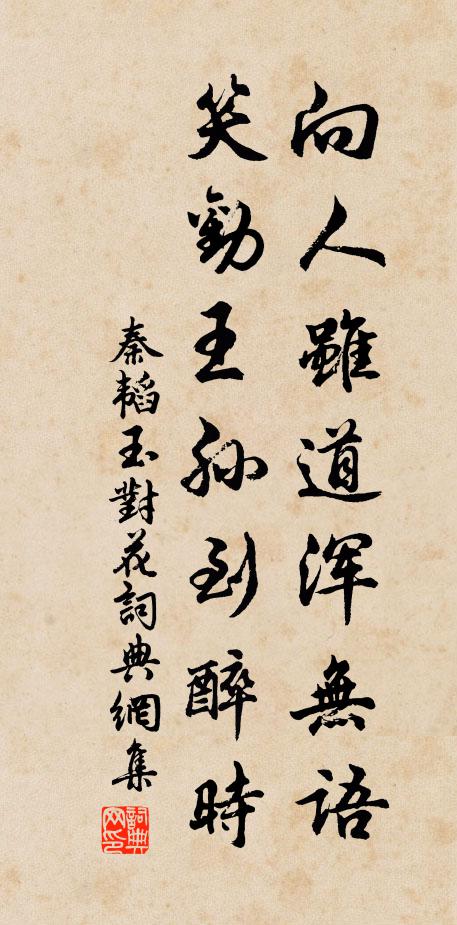 向人雖道渾無語
笑勸王孫到醉時
秦韜玉對花詞典網集
詞典网印